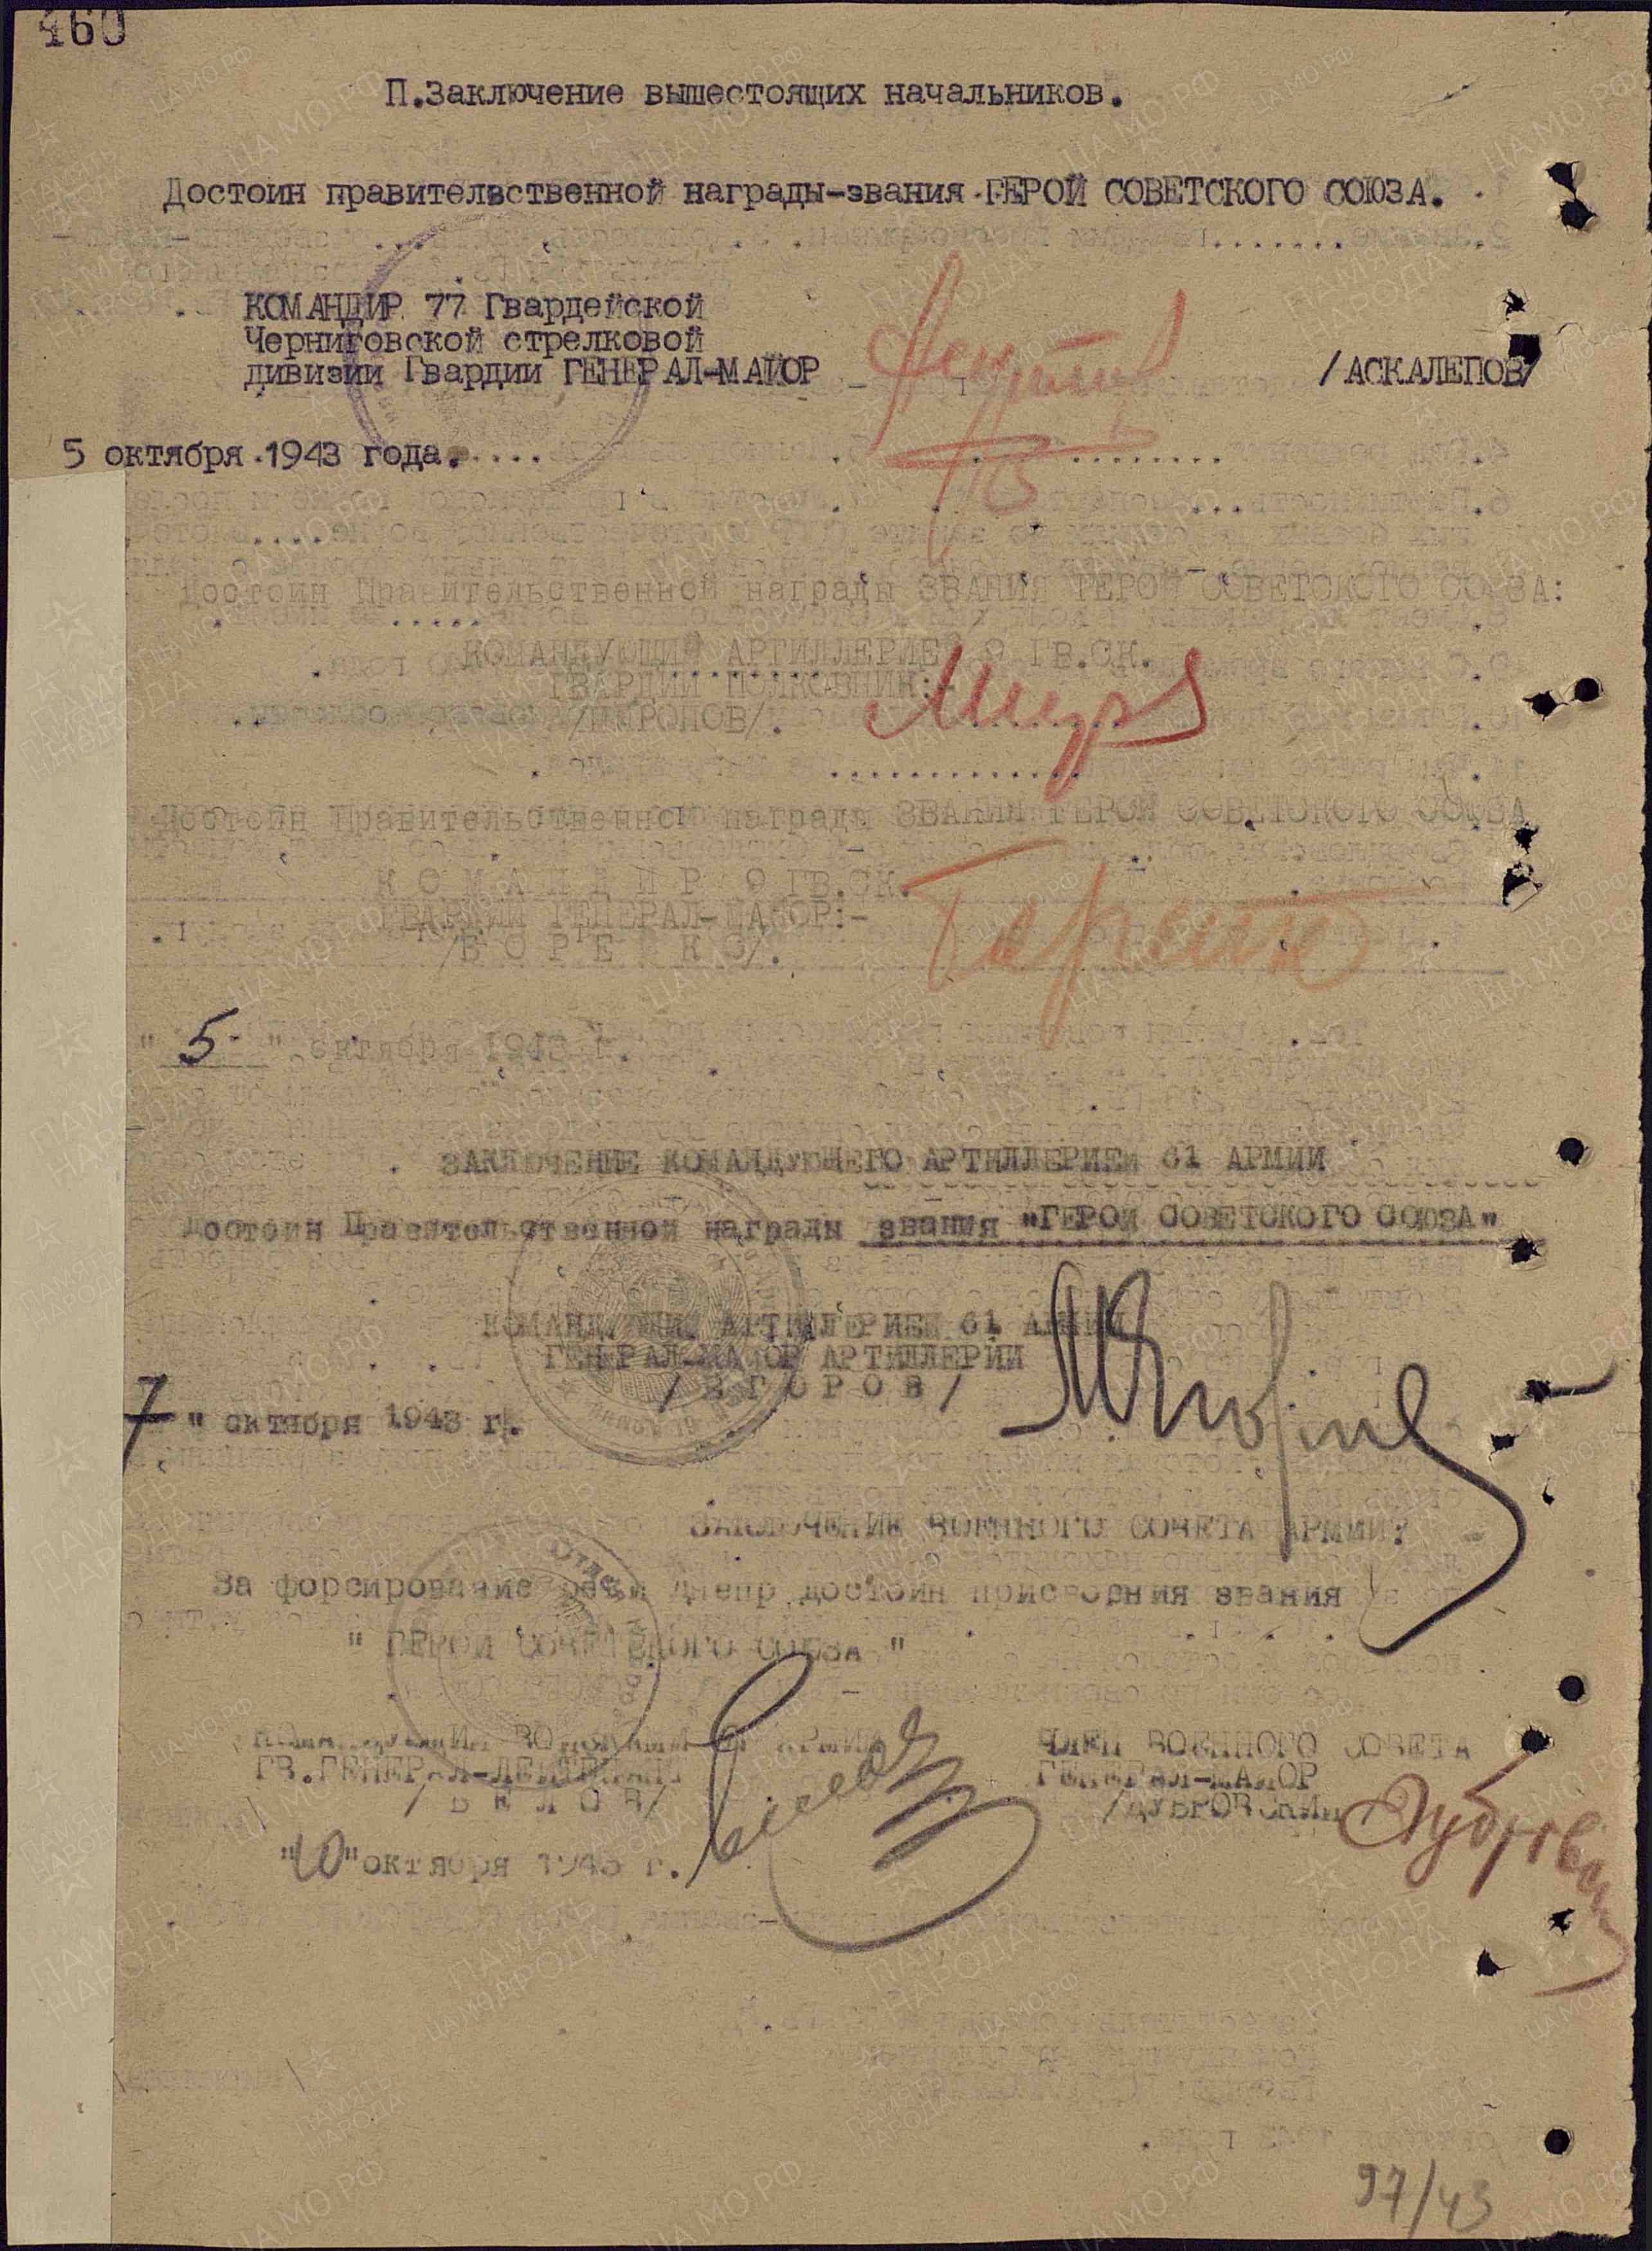 460
П.Заключение вышестоящих начальников.
Достоин правительвственной награды-звания ГЕРОЙ СОВЕТСКОГО СОЮЗА.
КОМАНДИР 77 Гвардейской
Черниговской стрелковой
дивизии Гвардии ГЕНЕРАЛ-МАЙОР /АСКАЛЕПОВ/
5 октября 1943 года.
Достоин Правительственной награды ЗВАНИЯ ГЕРОЙ СОВЕТСКОГО СОЮЗА:
КОМАНДУЮЩИЙ АРТИЛЛЕРИЕЙ 9 ГВ.СК.
ГВАРДИИ ПОЛКОВНИК:-
/МИРОНОВ/.
Достоин Правительственной награды ЗВАНИЯ ГЕРОЙ СОВЕТСКОГО СОЮЗА
КОМАНДИР 9 ГВ.СК.
ГВАРДИИ ГЕНЕРАЛ-МАЙОР:-
"5" октября 1943 г.
ЗАКЛЮЧЕНИЕ КОМАНДУЮЩЕГО АРТИЛЛЕРИЕЙ 61 АРМИИ
Достоин Правительственной награды звания "ГЕРОЙ СОВЕТСКОГО СОЮЗА"
КОМАНДУЮЩИЙ АРТИЛЛЕРИЕЙ 61 АРМИИ
ГЕНЕРАЛ-МАЙОР АРТИЛЛЕРИИ
/ЕГОРОВ/
7" октября 1943 г.
ЗАКЛЮЧЕНИЕ ВОЕННОГО СОВЕТА АРМИИ:
За форсирование реки Днепр достоин присвоения звания
" ГЕРОЙ СОВЕТСКОГО СОЮЗА "
КОМАНДУЮЩИЙ ВОЙСКАМИ 61 АРМИИ ЧЛЕН ВОЕННОГО СОВЕТА
ГВ.ГЕНЕРАЛ-ЛЕЙТЕНАНТ ГЕНЕРАЛ-МАЙОР
/БЕЛОВ/ /ДУБРОВСКИЙ/
"10" октября 1943 г.
97/43